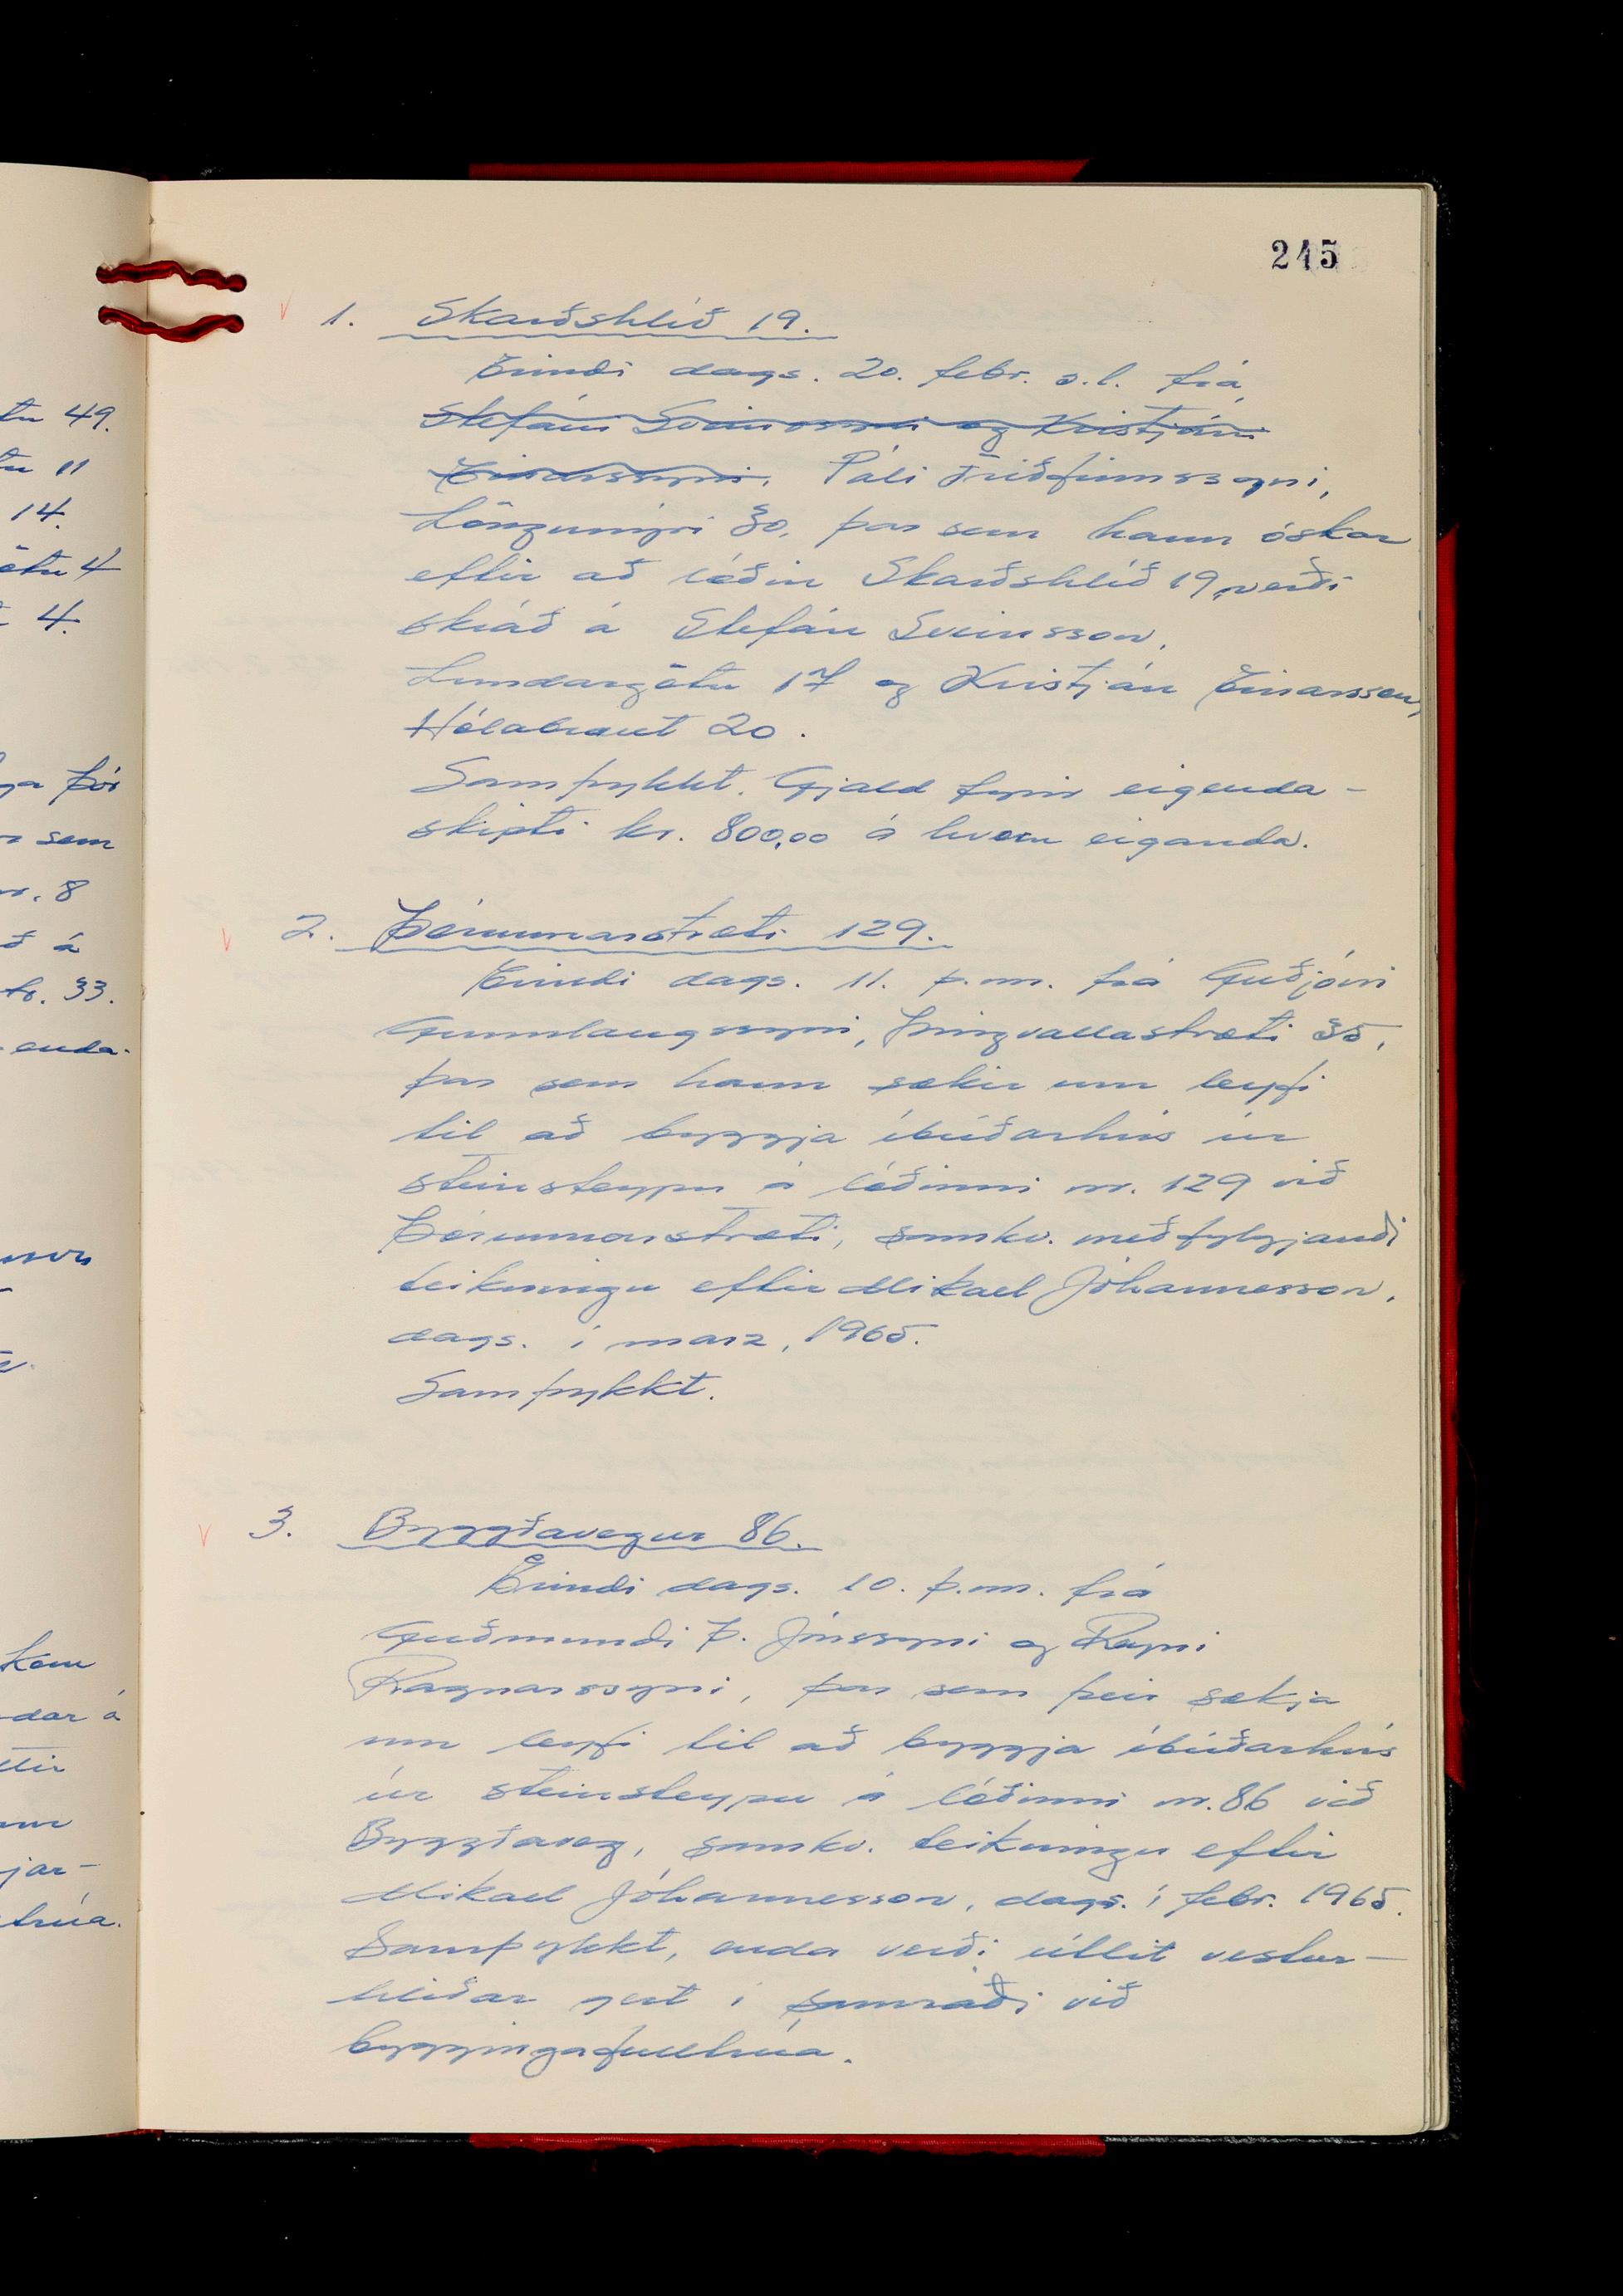 245
1. Skarðshlíð 19.
Erindi dags. 20. febr. s.l. frá
Stefáni Sveinssyni og Kristjáni
Einarssyni. Páli Friðfinnssyni,
Löngumýri 30, þar sem hann óskar
eftir að lóðin Skarðshlíð 19, verði
skráð á Stefán Sveinsson,
Lundargötu 17 og Kristján Einarsson,
Hólabraut 20.
Samþykkt. Gjald fyrir eigenda-
skipti kr. 800,00 á hvern eiganda.
2. Þórunnarstræti 129.
Erindi dags. 11. þ.m. frá Guðjóni
Gunnlaugssyni, Þingvallastræti 35,
þar sem hann sækir um leyfi
til að byggja íbúðarhús úr
steinsteypu á lóðinni nr. 129 við
Þórunnarstræti, samkv. meðfylgjandi
teikningu eftir Mikael Jóhannesson,
dags. í marz, 1965.
Samþykkt.
3. Byggðavegur 86.
Erindi dags. 10. þ.m. frá
Guðmundi Þ. Jónssyni og Reyni
Ragnarssyni, þar sem þeir sækja
um leyfi til að byggja íbúðarhús
úr steinsteypu á lóðinni nr. 86 við
Byggðaveg, samkv. teikningu eftir
Mikael Jóhannesson, dags. í febr. 1965.
Samþykkt, enda verði útlit vestur-
hliðar gert í samráði við
byggingafulltrúa.
tu 49.
tu 11
14.
ötu 4
4.
þór
sem
nr. 8
ð á
33.
enda-
kom
dar á
jar-
trúa.